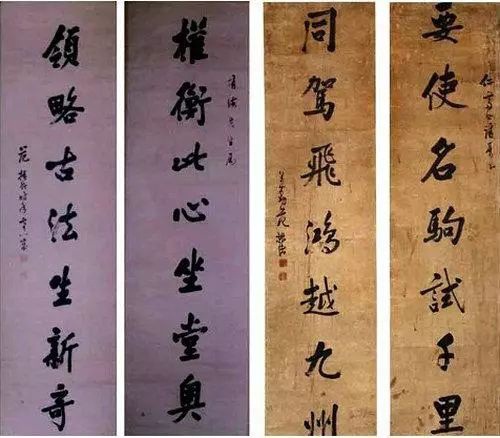 要使名駒試千里
同駕飛鴻越九州
權衡此心坐堂奧
領略古法生新奇